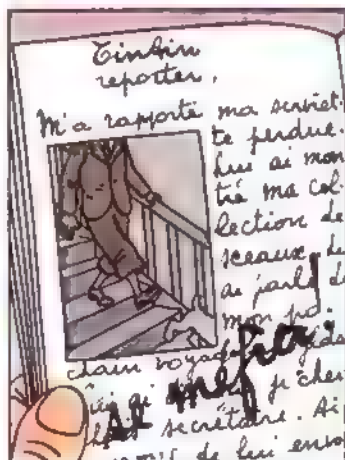 Tintin
reporter.
M'a rapporté ma serviet-
te perdue.
Lui ai mon
tré ma col-
lection de
sceaux. Lui
ai parlé de
mon pro
chain voyage
ai je cher
secrétaire. Ai
de lui envo
se méfier